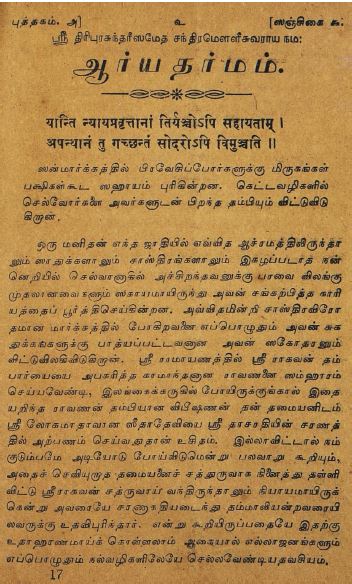 புத்தகம். அ] உ [ஸஞ்சிகை கூ.
ஸ்ரீ திரிபுரசுந்தரீஸமேத சந்திரமௌளீசுவராய நம:
ஆர்யதர்மம்.
यान्ति न्यायप्रवृत्तानां तिर्यञ्चोऽपि सहायताम् ।
अपन्थानं तु गच्छन्तं सोदरोऽपि विमुञ्चति ॥
ஸன்மார்க்கத்தில் பிரவேசிப்போர்களுக்கு மிருகங்கள்
பக்ஷிகள்கூட ஸஹாயம் புரிகின்றன. கெட்டவழிகளில்
செல்வோர்களை அவர்களுடன் பிறந்த தம்பியும் விட்டுவிடு
கிறான்.
ஒரு மனிதன் எந்த ஜாதியில் எவ்வித ஆச்ரமத்திலிருந்தா
லும் ஸாதுக்களாலும் சாஸ்திரங்களாலும் இகழப்படாத நன்
னெறியில் செல்வானாகில் அச்சிறந்தவனுக்கு பறவை விலங்கு
முதலானவைகளும் ஸகாயமாயிருந்து அவன் சங்கற்பித்த காரி
யத்தைப் பூர்த்திசெய்கின்றன. அவ்விதமின்றி சாஸ்திரவிரோ
தமான மார்க்கத்தில் போகிறவனை எப்பொழுதும் அவன் சுக
துக்கங்களுக்கு பாத்யப்பட்டவனான அவன் ஸகோதரனும்
விட்டுவிலகிவிடுகிறான். ஸ்ரீ ராமாயணத்தில் ஸ்ரீ ராகவன் தம்
பார்யையை அபகரித்த காமாந்தகனான ராவணனை ஸம்ஹாரம்
செய்யவேண்டி, இலங்கைக்கருகில் போயிருக்குங்கால் இதை
யறிந்த ராவணன் தம்பியான விபிஷணன் தன் தமையனிடம்
ஸ்ரீ லோகமாதாவான ஸீதாதேவியை ஸ்ரீ தாசரதியின் சரணத்
தில் அற்பணம் செய்வதுதான் உசிதம். இல்லாவிட்டால் நம்
குடும்பமே அடியோடு போய்விடுமென்று பலவாறு கூறியும்,
அதைச் செவியுறாத தமையனைச் சத்துருவாக நினைத்து தள்ளி
விட்டு ஸ்ரீராகவன் சத்ருவாய் வந்திருந்தாலும் நியாயமாயிருக்
கென்று அவரையே சரணாகதியடைந்து தம்மாலியன்றவரையி
லவருக்கு உதவிபுரிந்தார். என்று கூறியிருப்பதையே இதற்கு
உதாஹரணமாய்க் கொள்ளலாம் ஆகையால் எல்லாஜனங்களும்
எப்பொழுதும் நல்வழிகளிலேயே செல்லவேண்டியதவசியம்.
17